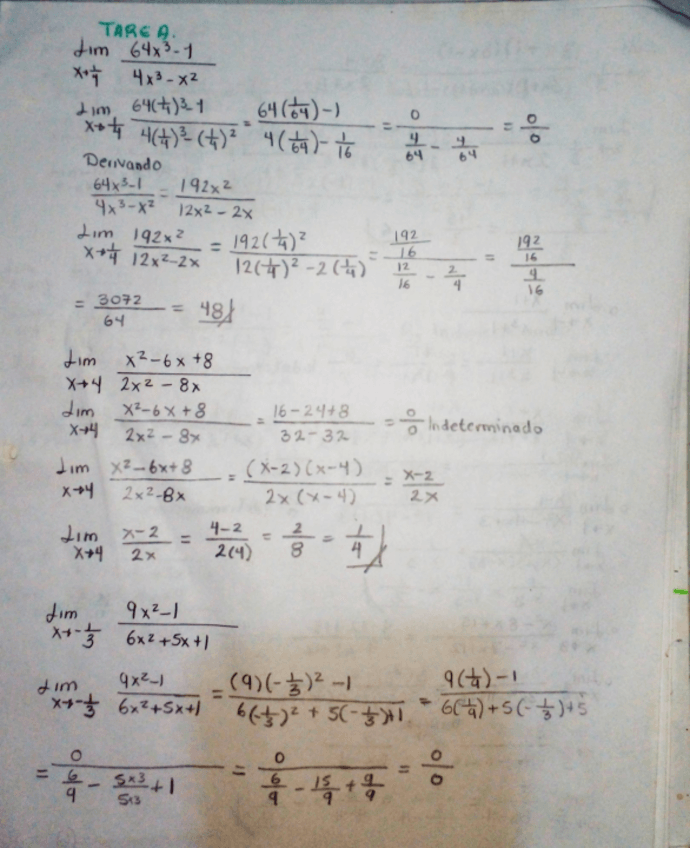 TAREA.
Lim x→1/4 (64x³-1)/(4x³-x²)
Lim x→1/4 (64(1/4)³-1)/(4(1/4)³-(1/4)²) = (64(1/64)-1)/(4(1/64)-1/16) = 0/(4/64 - 4/64) = 0/0
Derivando
(64x³-1)/(4x³-x²) = (192x²)/(12x²-2x)
Lim x→1/4 (192x²)/(12x²-2x) = (192(1/4)²)/(12(1/4)²-2(1/4)) = (192/16)/(12/16 - 2/4) = (192/16)/(4/16)
= 3072/64 = 48
Lim x→4 (x²-6x+8)/(2x²-8x)
Lim x→4 (x²-6x+8)/(2x²-8x) = (16-24+8)/(32-32) = 0/0 Indeterminado
Lim x→4 (x²-6x+8)/(2x²-8x) = ((x-2)(x-4))/(2x(x-4)) = (x-2)/(2x)
Lim x→4 (x-2)/(2x) = (4-2)/(2(4)) = 2/8 = 1/4
Lim x→-1/3 (9x²-1)/(6x²+5x+1)
Lim x→-1/3 (9x²-1)/(6x²+5x+1) = ((9)(-1/3)²-1)/(6(-1/3)²+5(-1/3)+1) = (9(1/9)-1)/(6(1/9)+5(-1/3)+5)
= 0/(6/9 - 5x3/5x3 + 1) = 0/(6/9 - 15/9 + 9/9) = 0/0